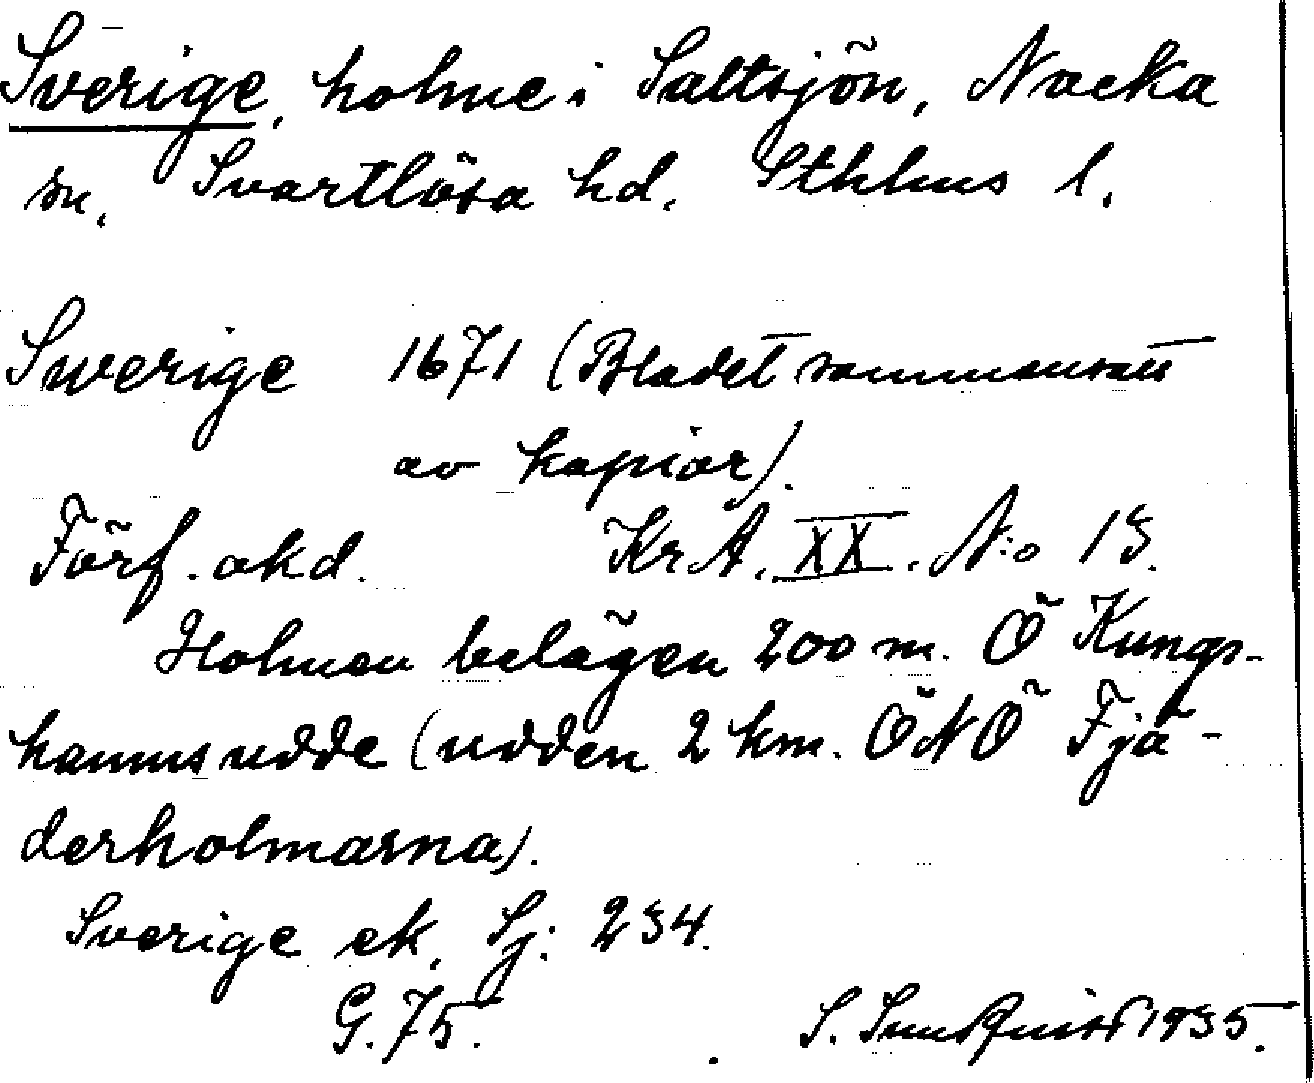 Sverige, holme i Saltsjön, Nacka
sn. Svartlösa hd. Sthlms l.
Swerige 1671 (Bladet sammansatt
av kopior).
Förf. okd. KrA. XX. N:o 13.
Holmen belägen 200 m. Ö Kungs-
hamns udde (udden 2 km. ÖNÖ Fjä-
derholmarna).
Sverige ek. Sj: 234.
G. 75. S. Sundquist 1935.